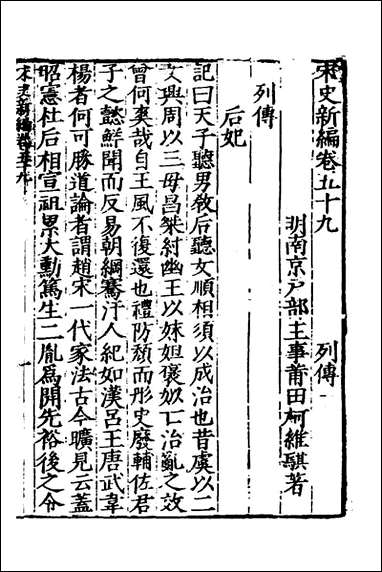 宋史新編卷五十九　列傳一
明南京戶部主事莆田柯維騏著
列傳
后妃
記曰天子聽男敎后聽女順相須以成治也昔虞以二
女興周以三母昌桀紂幽王以妹妲褒姒亡治亂之效
曾何爽哉自王風不復還也禮防頽而彤史廢輔佐君
子之懿鮮聞而反易朝綱鶱汙人紀如漢呂王唐武韋
楊者何可勝道論者謂趙宋一代家法古今曠見云蓋
昭憲杜后相宣祖累大勳篤生二胤爲開先裕後之令
宋史新編卷五十九　一